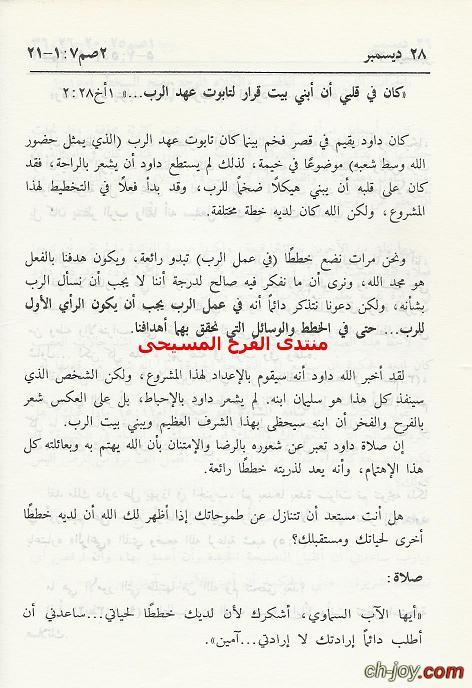 ٢٨ ديسمبر ٢صم٧:١-٢١
«كان في قلبي أن أبني بيت قرار لتابوت عهد الرب...» ١أخ٢٨:٢
كان داود يقيم في قصر فخم بينما كان تابوت عهد الرب (الذي يمثل حضور
الله وسط شعبه) موضوعًا في خيمة، لذلك لم يستطع داود أن يشعر بالراحة، فقد
كان على قلبه أن يبني هيكلًا ضخمًا للرب، وقد بدأ فعلًا في التخطيط لهذا
المشروع، ولكن الله كان لديه خطة مختلفة.
ونحن مرات نضع خططًا (في عمل الرب) تبدو رائعة، ويكون هدفنا بالفعل
هو مجد الله، ونرى أن ما نفكر فيه صالح لدرجة أننا لا يجب أن نسأل الرب
بشأنه، ولكن دعونا نتذكر دائمًا أنه في عمل الرب يجب أن يكون الرأي الأول
للرب... حتى في الخطط والوسائل التي نحقق بهما أهدافنا.
منتدى الفرح المسيحى
لقد أخبر الله داود أنه سيقوم بالإعداد لهذا المشروع، ولكن الشخص الذي
سينفذ كل هذا هو سليمان ابنه. لم يشعر داود بالإحباط، بل على العكس شعر
بالفرح والفخر أن ابنه سيحظى بهذا الشرف العظيم ويبني بيت الرب.
إن صلاة داود تعبر عن شعوره بالرضا والإمتنان بأن الله يهتم به وبعائلته كل
هذا الإهتمام، وأنه يعد لذريته خططًا رائعة.
هل أنت مستعد أن تتنازل عن طموحاتك إذا أظهر لك الله أن لديه خططًا
أخرى لحياتك ومستقبلك؟
صلاة:
«أيها الآب السماوي، أشكرك لأن لديك خططًا لحياتي...ساعدني أن
أطلب دائمًا إرادتك لا إرادتي..آمين».
ch-joy.com